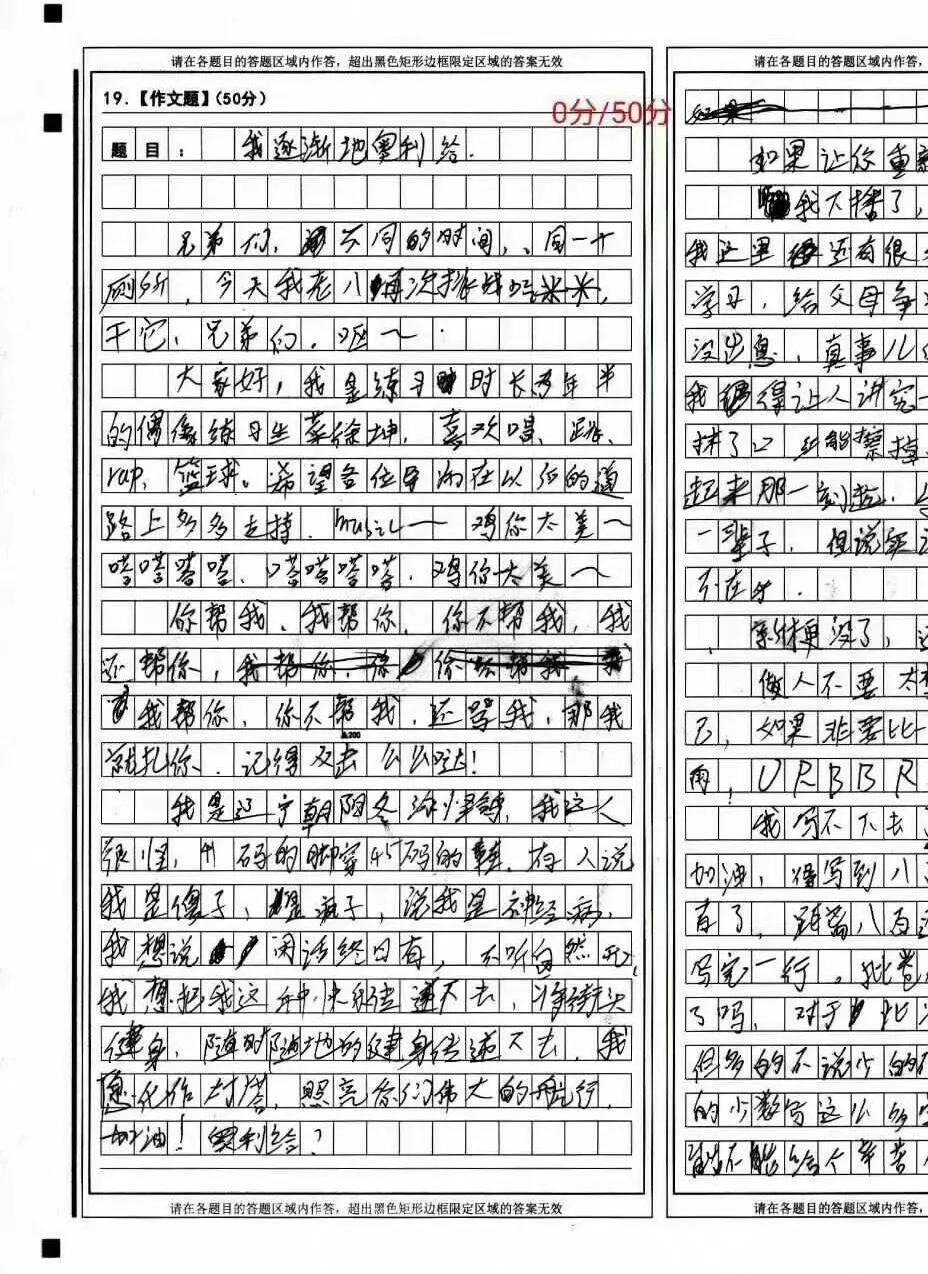 请在各题目的答题区域内作答，超出黑色矩形边框限定区域的答案无效
19.【作文题】（50分）
0分/50分
题目：我逐渐地奥利给.
兄弟们，不同的时间，同一个
厕所，今天我老八再次挑战
干它，兄弟们.呕～
大家好，我是练习时长两年半
的偶像练习生蔡徐坤，喜欢唱、跳、
rap、篮球。希望各位导师在以后的道
路上多多支持.music～鸡你太美～
嗒嗒嗒嗒、嗒嗒嗒嗒.鸡你太美～
你帮我、我帮你.你不帮我，我
还帮你，
我帮你，你不帮我，还骂我，那我
就扎你.记得双击么么哒！
我是辽宁朝阳冬泳，我这人
很怪，41码的脚穿45码的鞋.有人说
我是傻子，是疯子，说我是神经病，
我想说闲话终日有，不听自然无，
我想把我这种冬泳传递下去，将街头
健身，随时随地的健身传递下去.我
愿化作灯塔，照亮你们伟大的航行，
加油！奥利给？
200
请在各题目的答题区域内作答，超出黑色矩形边框限定区域的答案无效
请在各题目的答题区域内作答，
如果
如果让你重新
我不择了，
我这里还有很
学习，给父母争
没出息，真事儿
我得让人讲究一
抹了口
起来那一刻
一辈子.但说实
不在乎.
新梗没了，
做人不要太
己，如果非要比一
雨，URBBR
我写不下去
加油，得写到八
百了，距离八百
写完一行。批卷
了吗，对于此
但多的不说少的
的少数写这么多
能不能给个辛苦
请在各题目的答题区域内作答，